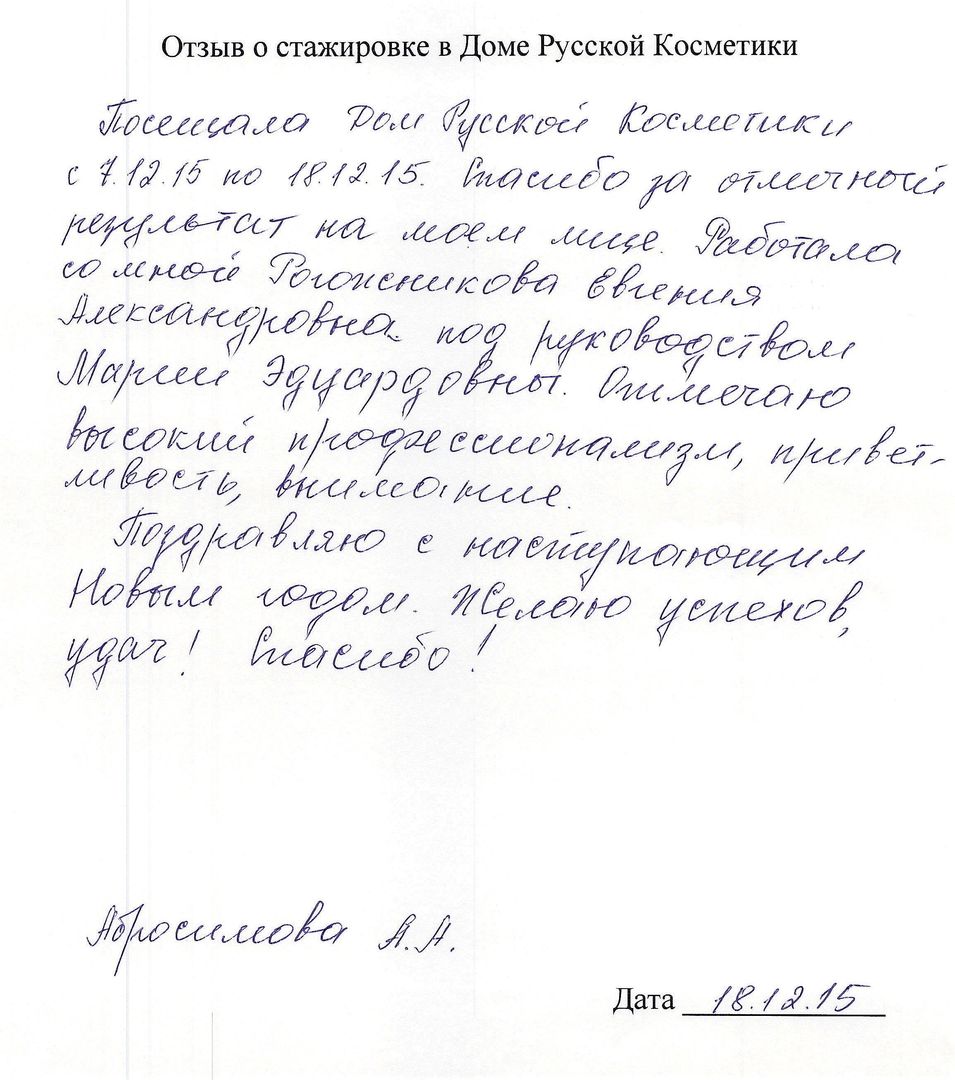 Отзыв о стажировке в Доме Русской Косметики
Посещала Дом Русской Косметики
с 7.12.15 по 18.12.15. Спасибо за отличный
результат на моем лице. Работала
со мной Рогожникова Евгения
Александровна под руководством
Марии Эдуардовны. Отмечаю
высокий профессионализм, привет-
ливость, внимание.
Поздравляю с наступающим
Новым годом. Желаю успехов,
удач! Спасибо!
Абросимова А.А.
Дата 18.12.15